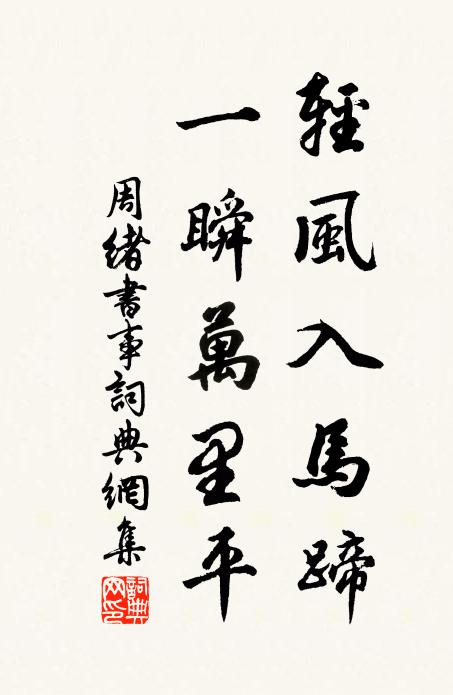 輕風入馬蹄
一瞬萬里平
周緒書事詞典網集
詞典
网印